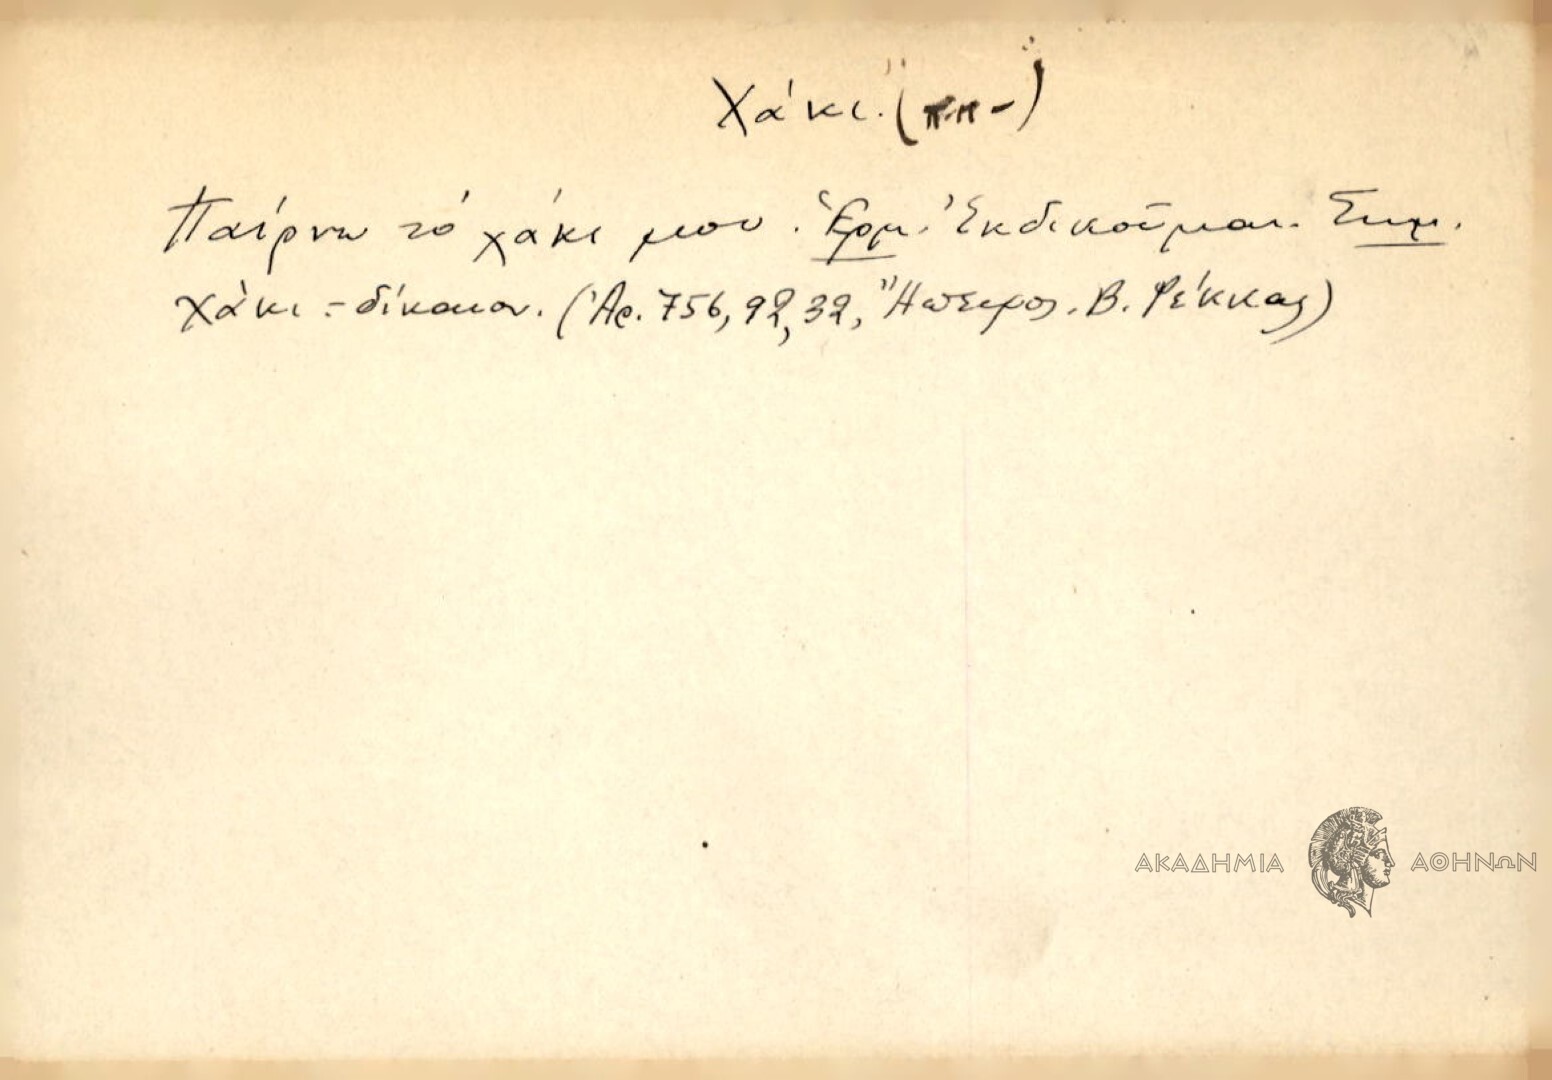 Χάκι. (π.π-)
Παίρνω τό χάκι μου. Ἑρμ. Ἐκδικοῦμαι. Σημ.
χάκι = δίκαιον. (Ἀρ. 756, 92, 32, Ἤπειρος. Β. Φέκκας)
ΑΚΑΔΗΜΙΑ ΑΘΗΝΩΝ